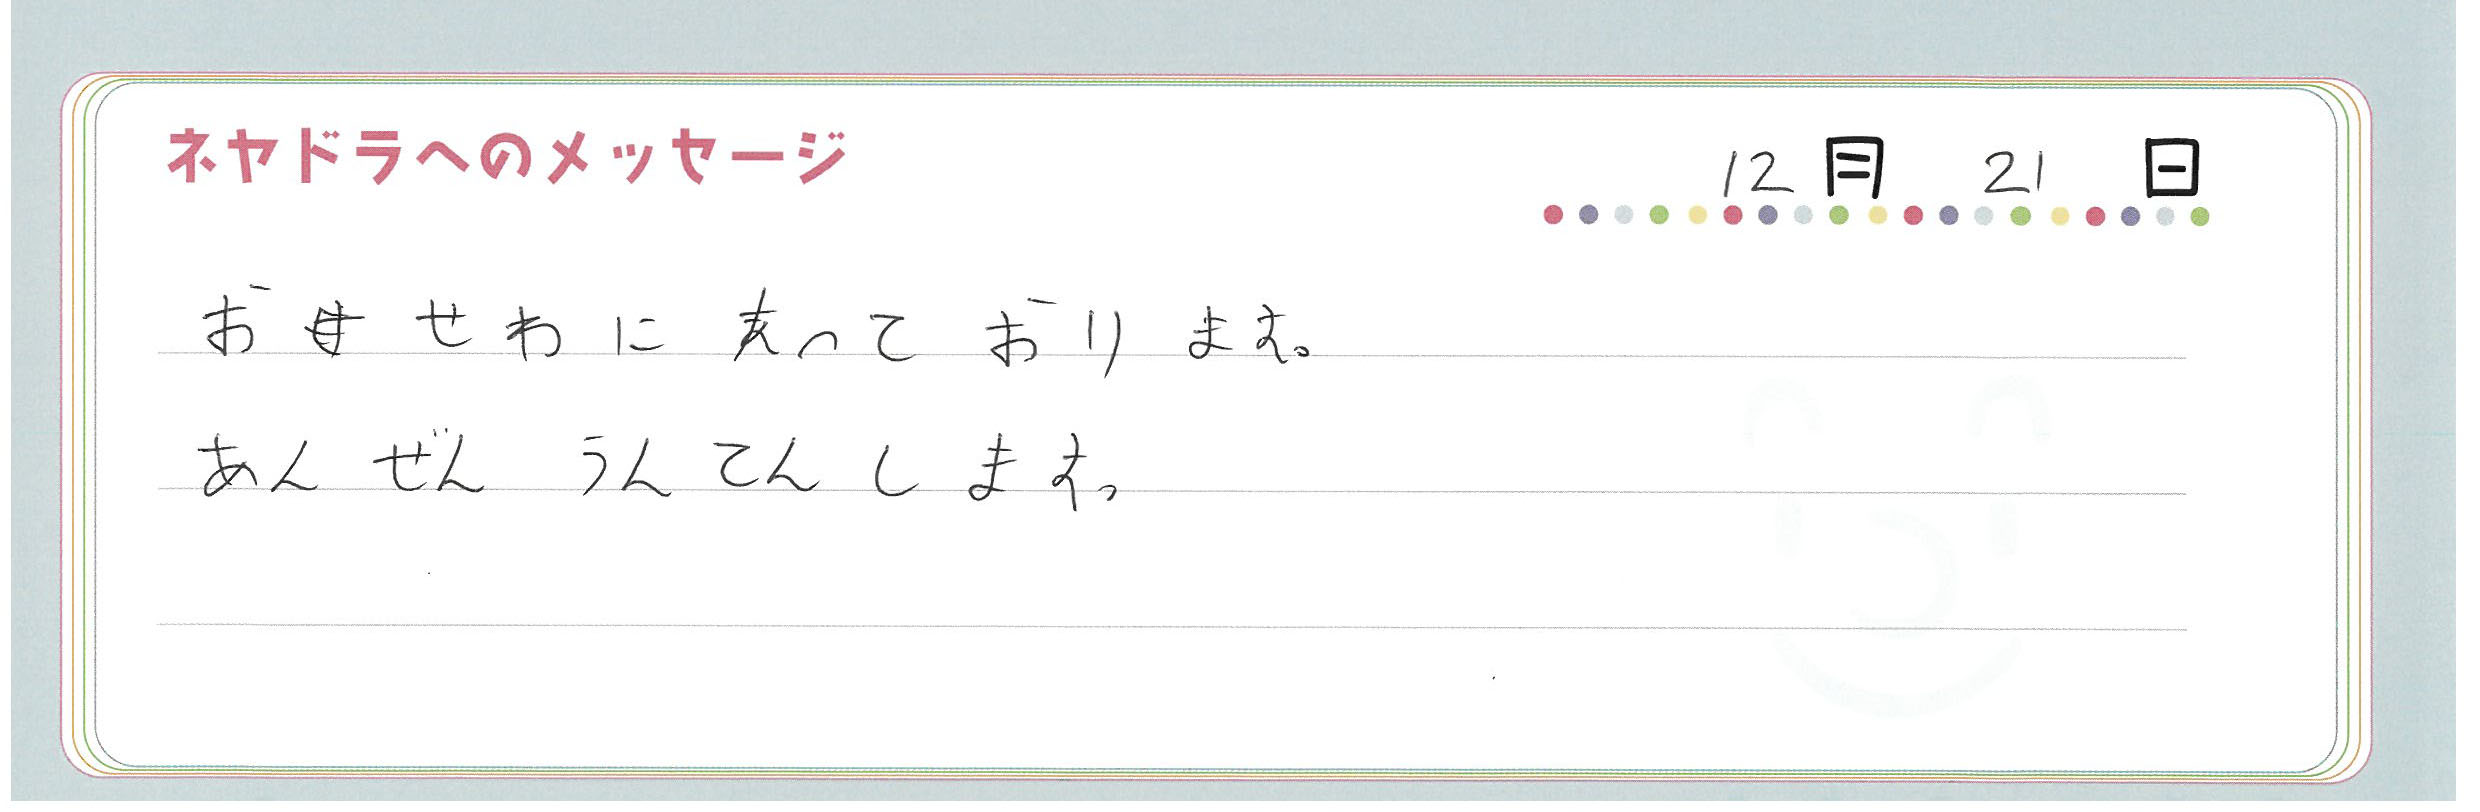 ネヤドラへのメッセージ
12月 21日
おせわに なっております。
あんぜん うんてん します。